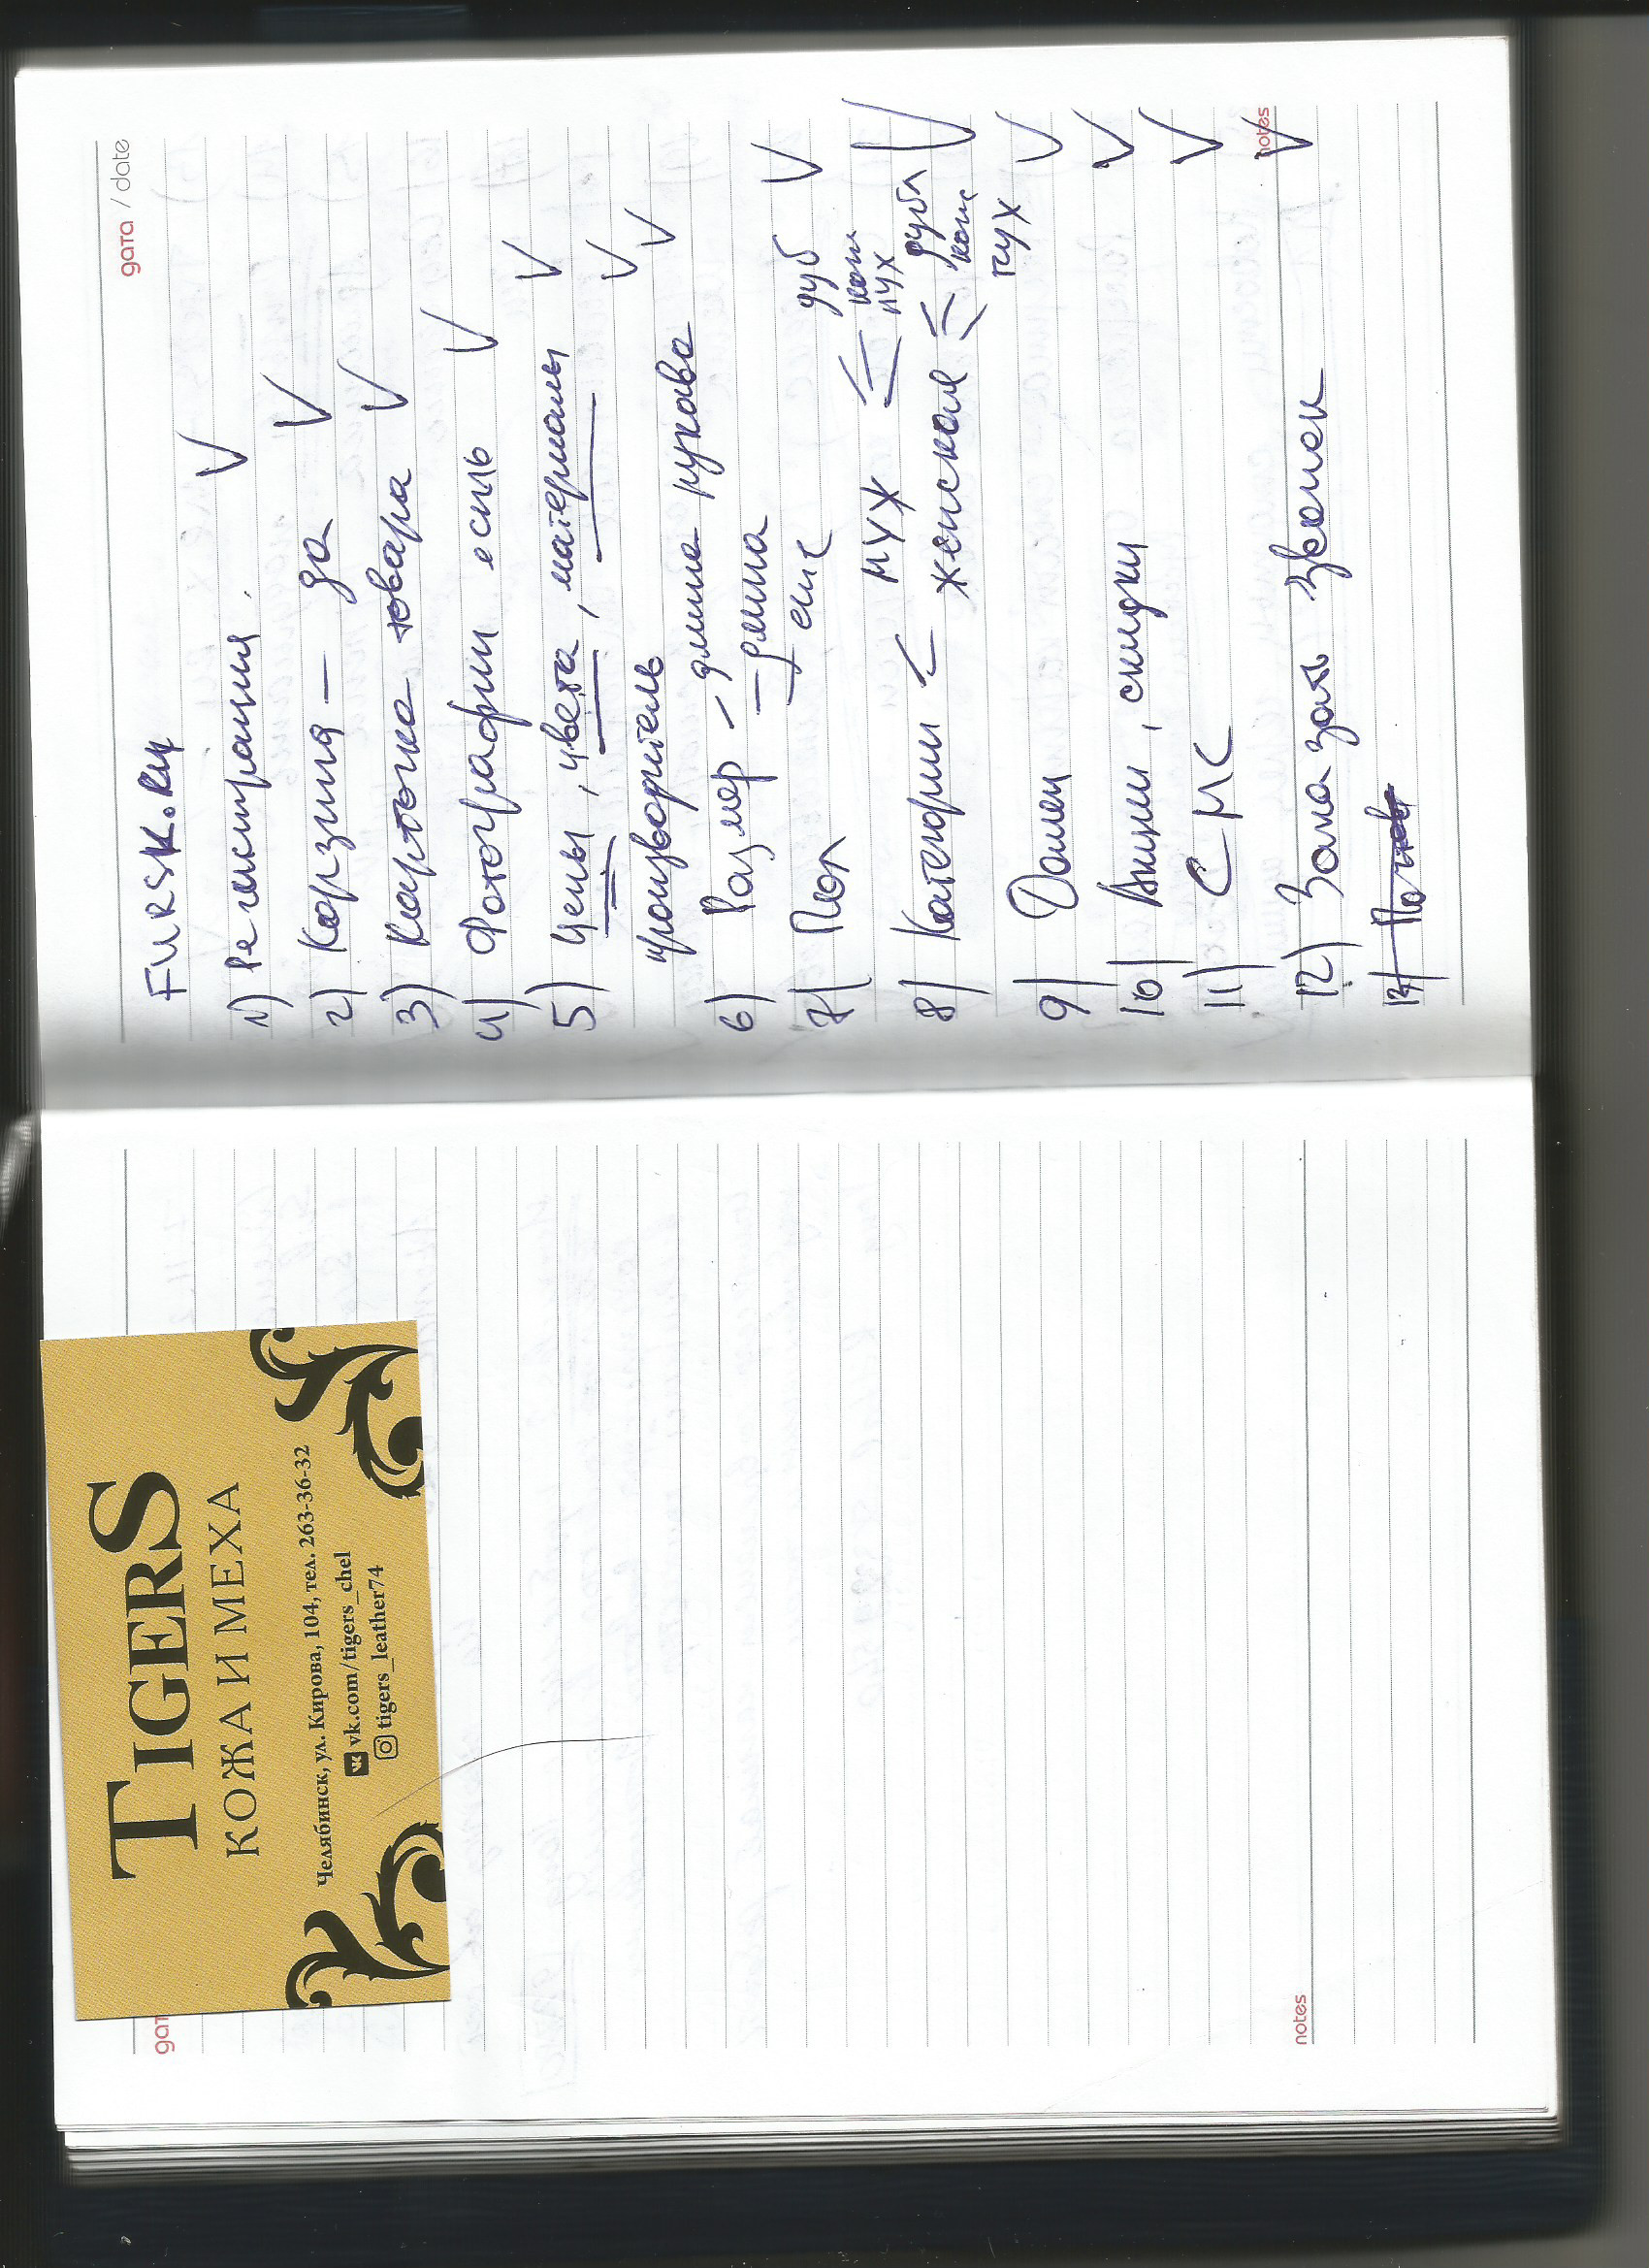 TIGERS
КОЖА И МЕХА
Челябинск, ул. Кирова, 104, тел. 263-36-32
vk.com/tigers_chel
tigers_leather74
дат
notes
дата / date
FURSK.RU
1) Регистрация.
2) Корзина — да
3) Карточка товара
4) Фотографии есть
5) Цены, цвета, материалы
производитель
6) Размер — длина рукава
— длина
— еще
7) Пол
8) Категории < муж < дуб
кож
пух
женская < дубл
кож
пух
9) Домен
10) Акции, скидки
11) СМС
notes
12) Заказать звонок
13)